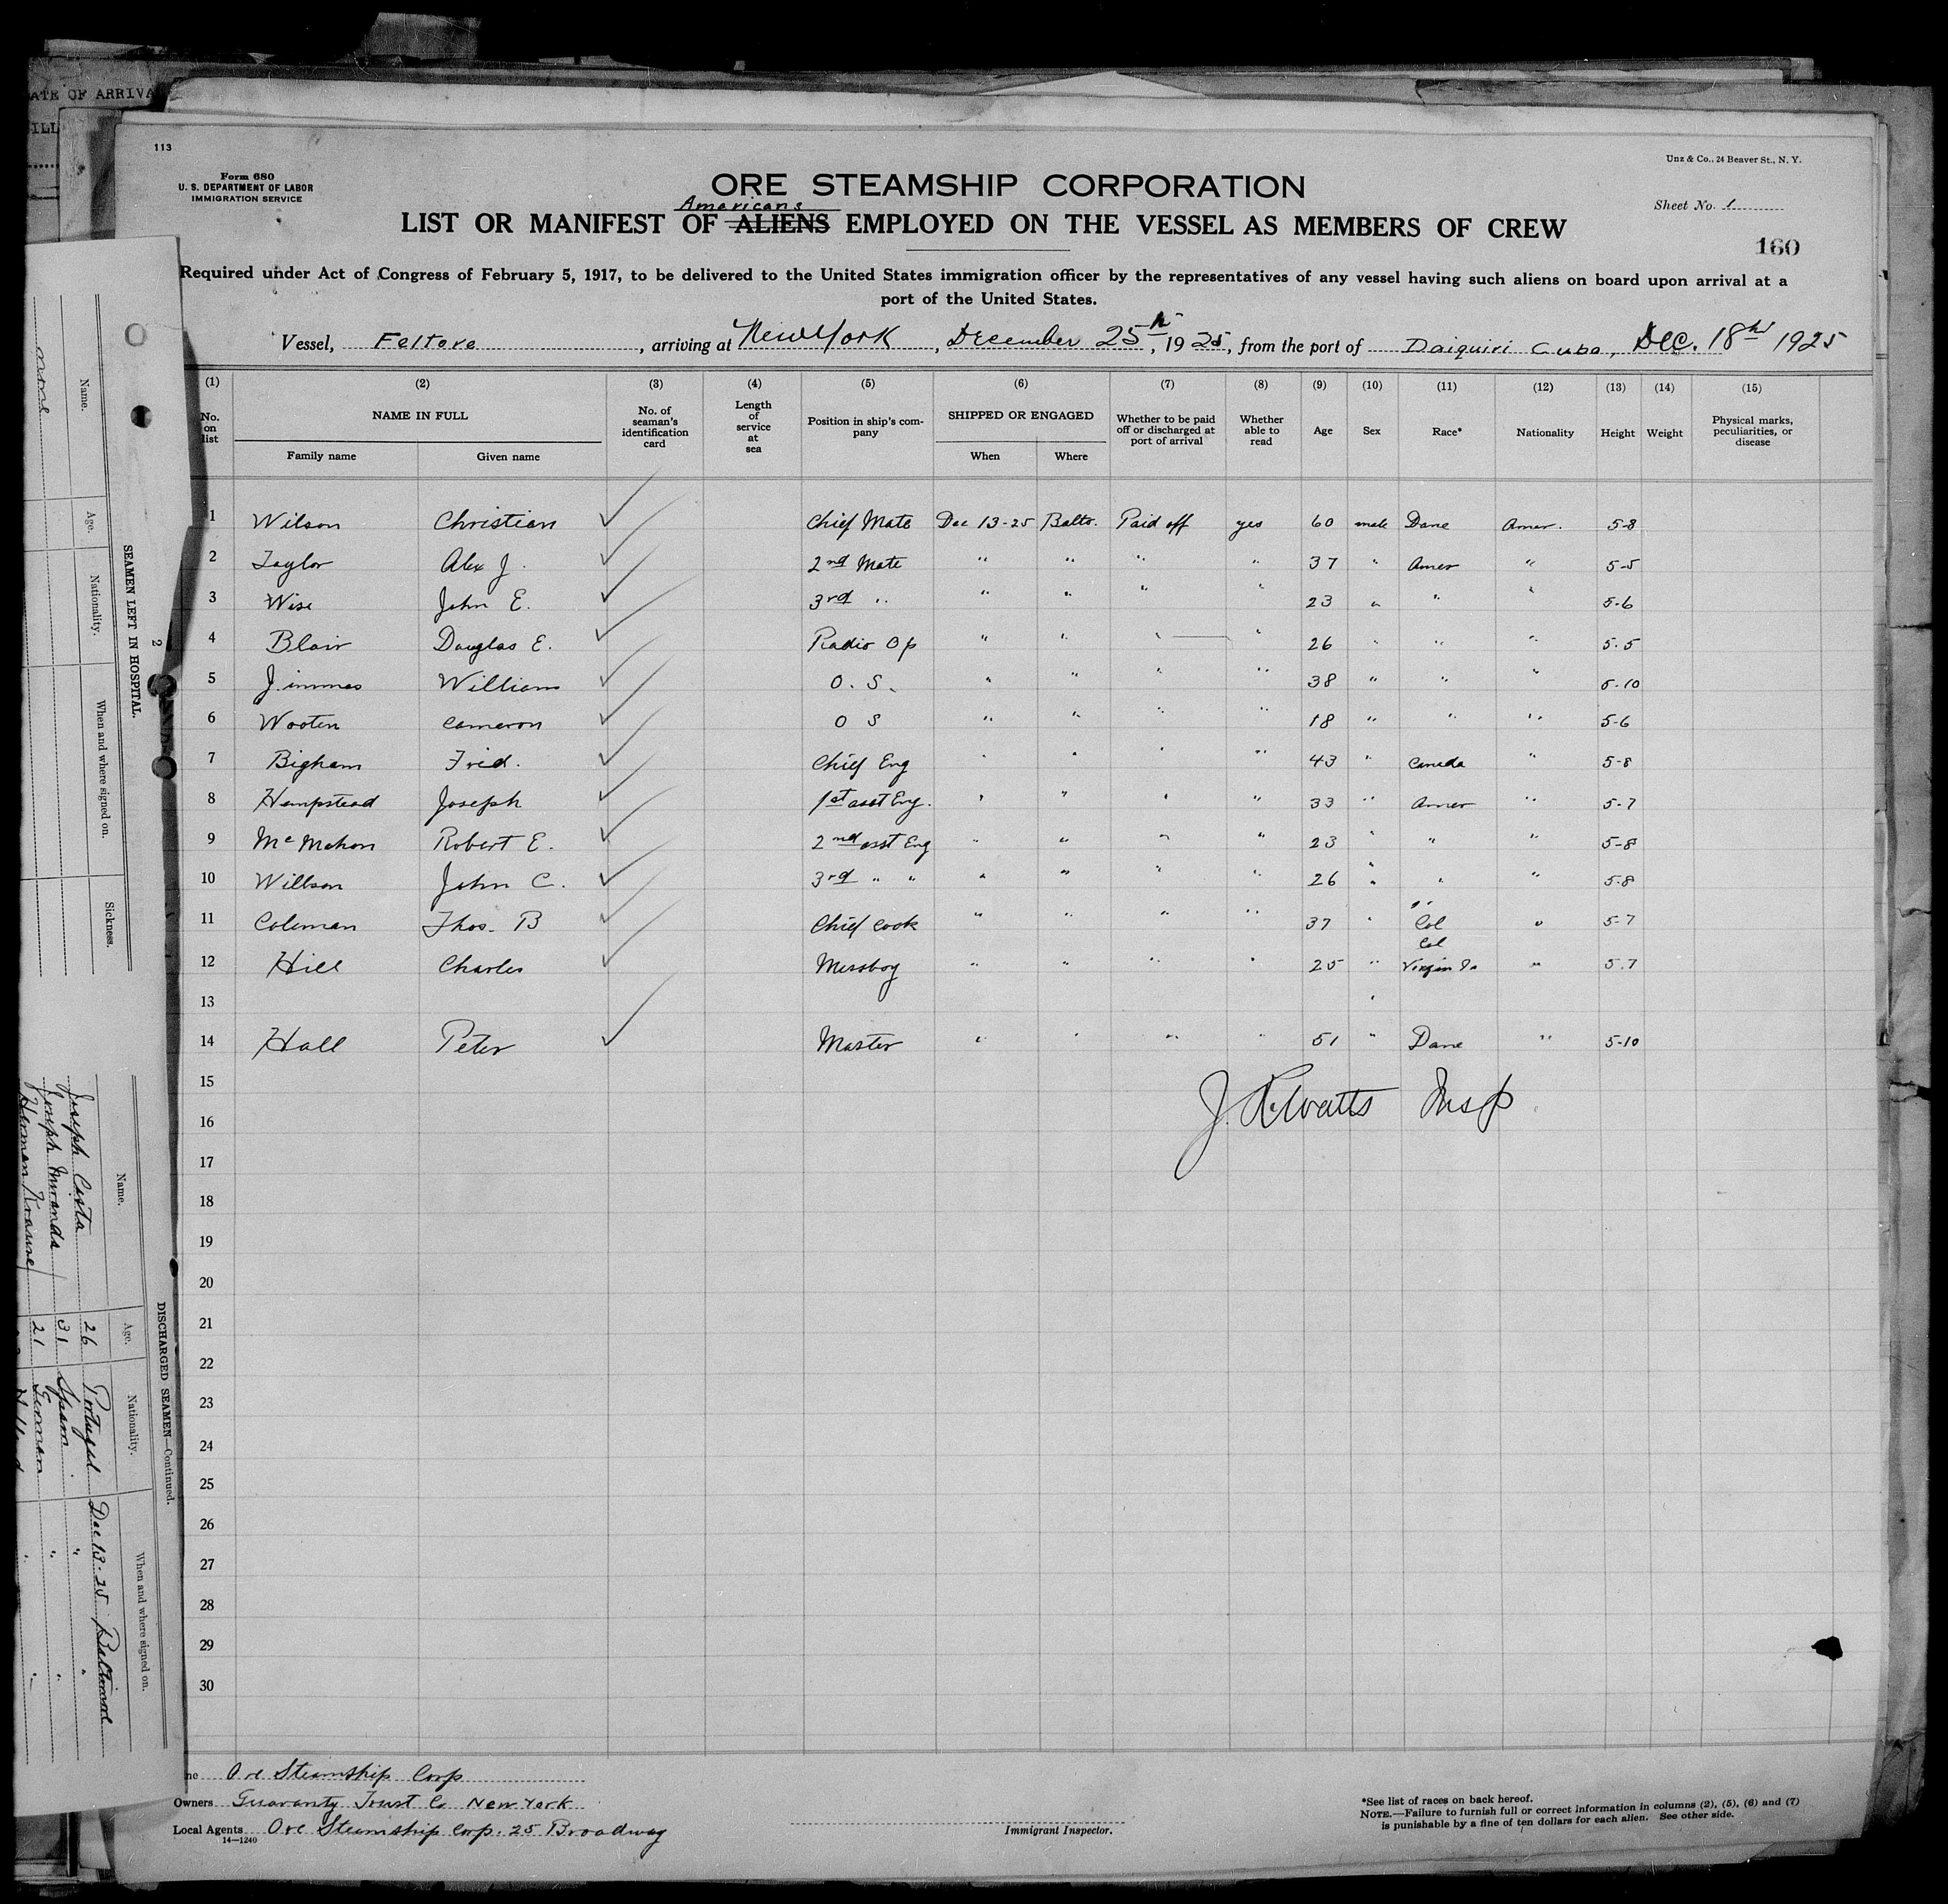 ATE OF ARRIVA
ILL
113
Form 680
U. S. DEPARTMENT OF LABOR
IMMIGRATION SERVICE
Unz & Co., 24 Beaver St., N. Y.
ORE STEAMSHIP CORPORATION
Americans
LIST OR MANIFEST OF ALIENS EMPLOYED ON THE VESSEL AS MEMBERS OF CREW
Sheet No. 1
160
Required under Act of Congress of February 5, 1917, to be delivered to the United States immigration officer by the representatives of any vessel having such aliens on board upon arrival at a
port of the United States.
Vessel, Feltore, arriving at New York, December 25th, 1925, from the port of Daiquiri Cuba, Dec. 18th 1925
(1) (2) (3) (4) (5) (6) (7) (8) (9) (10) (11) (12) (13) (14) (15)
No. on list NAME IN FULL Family name Given name No. of seaman's identification card Length of service at sea Position in ship's company SHIPPED OR ENGAGED When Where Whether to be paid off or discharged at port of arrival Whether able to read Age Sex Race* Nationality Height Weight Physical marks, peculiarities, or disease
1 Wilson Christian Chief Mate Dec 13-25 Balto. Paid off yes 60 male Dane Amer. 5-8
2 Taylor Alex J. 2nd Mate " " " " 37 " Amer " 5-5
3 Wise John E. 3rd " " " " " 23 " " " 5-6
4 Blair Douglas E. Radio Op " " " " 26 " " " 5-5
5 Jimmes William O. S. " " " " 38 " " " 5-10
6 Wooten Cameron O S " " " " 18 " " " 5-6
7 Bigham Fred. Chief Eng " " " " 43 " Canada " 5-8
8 Hempstead Joseph 1st asst Eng. " " " " 33 " Amer " 5-7
9 McMahon Robert E. 2nd asst Eng " " " " 23 " " " 5-8
10 Willson John C. 3rd " " " " " " 26 " " " 5-8
11 Coleman Thos. B Chief Cook " " " " 37 " " Col " 5-7
12 Hill Charles Messboy " " " " 25 " Col Virgin Is " 5.7
13
14 Hall Peter Master " " " " 51 " Dane " 5-10
15
16
J. R. Watts Insp
17
18
19
20
21
22
23
24
25
26
27
28
29
30
Ore Steamship Corp
Owners Guaranty Trust Co New York
Local Agents Ore Steamship Corp. 25 Broadway
14—1240
Immigrant Inspector.
*See list of races on back hereof.
NOTE.—Failure to furnish full or correct information in columns (2), (5), (6) and (7)
is punishable by a fine of ten dollars for each alien. See other side.
2
SEAMEN LEFT IN HOSPITAL.
Name. Age. Nationality. When and where signed on. Sickness.
none
DISCHARGED SEAMEN—Continued.
Name. Age. Nationality. When and where signed on.
Joseph Costa 26 Portugal Dec 13-25 Baltimore
Joseph Miranda 31 Spain " "
Herman Krause 21 German " "